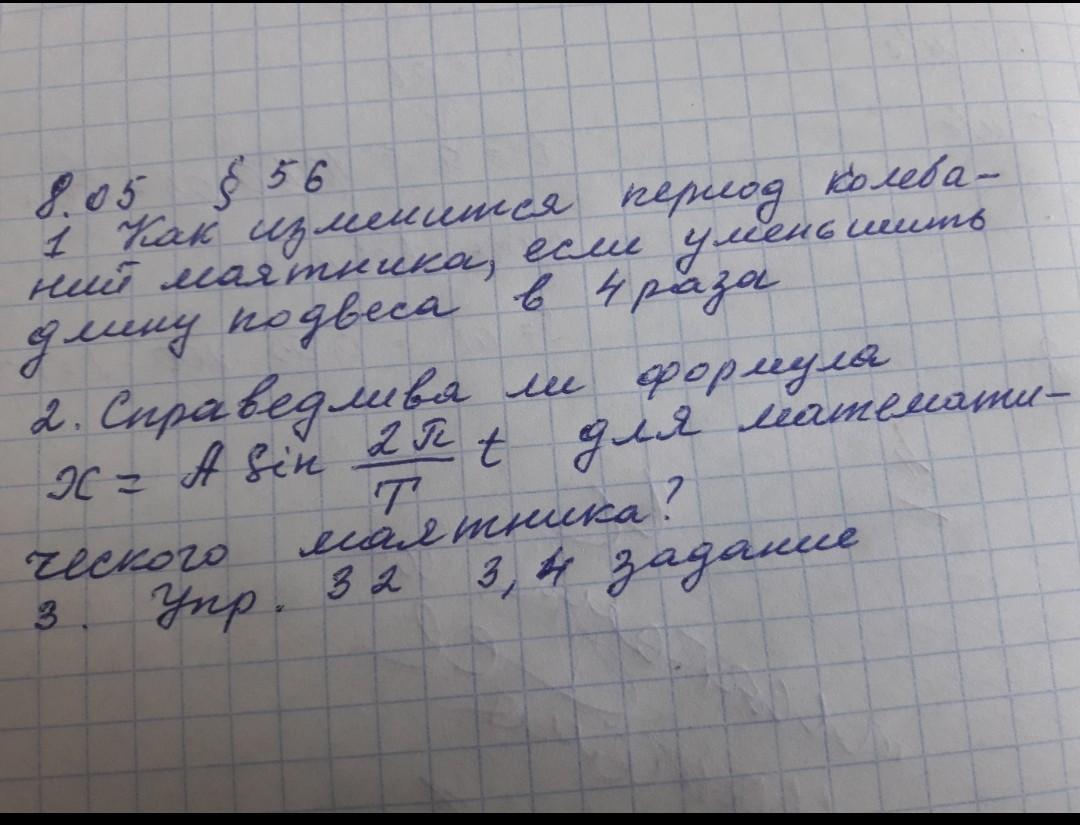 8.05 § 56
1 Как изменится период колеба-
ний маятника, если уменьшить
длину подвеса в 4 раза
2. Справедлива ли формула
x = A Sin 2π/T t для математи-
ческого маятника?
3. Упр. 32 3,4 задание